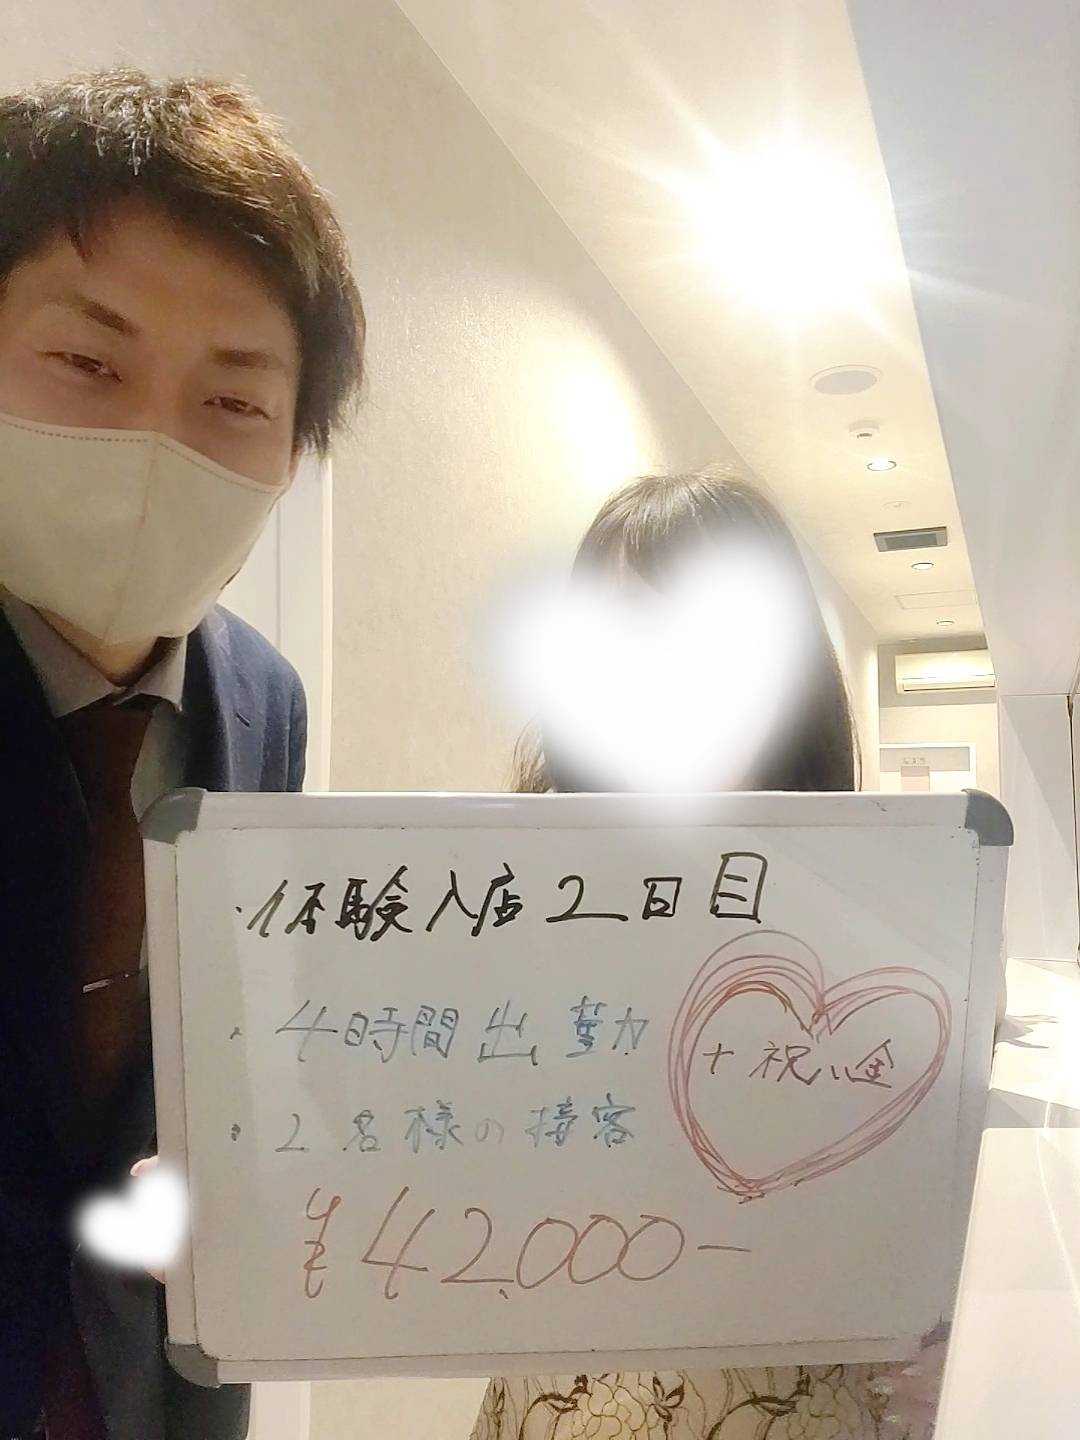 ・体験入店2日目
・4時間出勤
・2名様の接客
+祝い金
¥42,000-